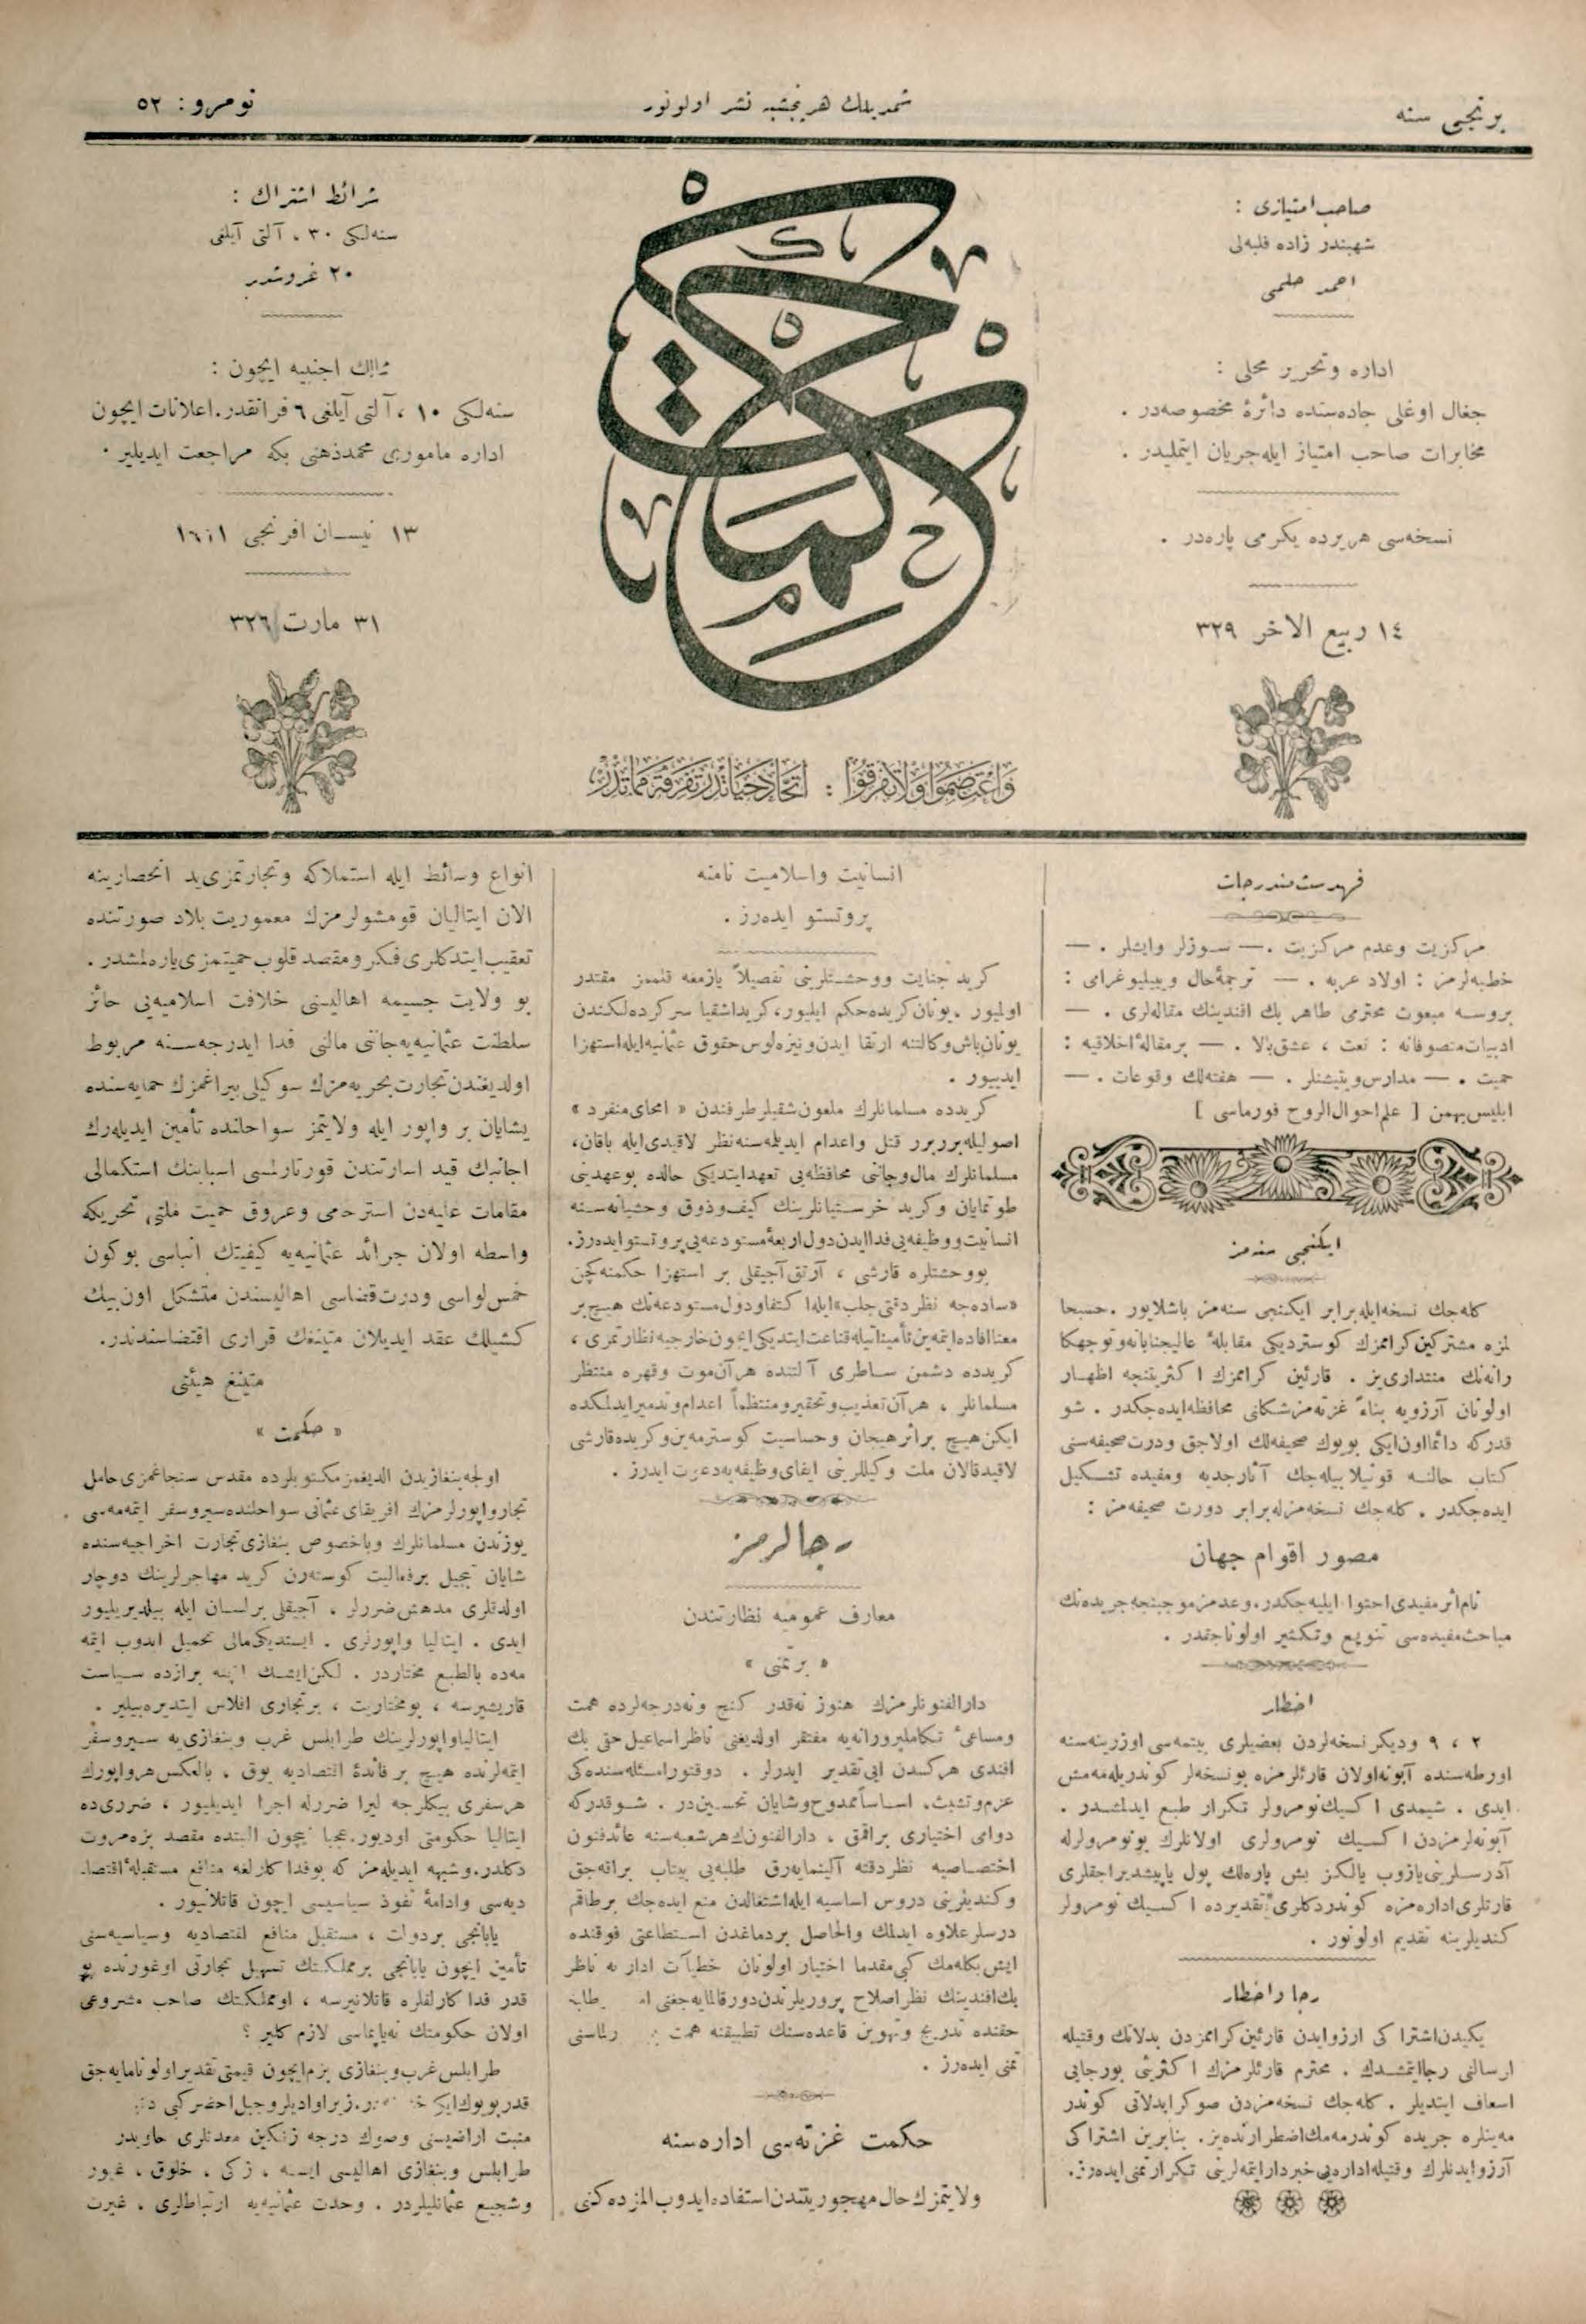 برنجی سنه
شمدیلك هر پنجشنبه نشر اولونور
نومرو : ٥٢
صاحب امتیازی :
شهبندر زاده فلبه‌لی
احمد حلمی
اداره و تحریر محلی :
جغال اوغلی جاده‌سنده دائرهٔ مخصوصه‌در .
مخابرات صاحب امتیاز ایله جریان ایتملیدر .
نسخه‌سی هریرده یکرمی پاره‌در .
١٤ ربیع الاخر ٣٢٩
حكمت
وَاعْتَصِمُوا وَلَا تَفَرَّقُوا : اتحاد حیاتدر تفرقه مماتدر
شرائط اشتراك :
سنه‌لکی ٣٠ ، آلتی آیلغی
٢٠ غروشدر
ممالك اجنبیه ایچون :
سنه‌لکی ١٠ ، آلتی آیلغی ٦ فرانقدر. اعلانات ایچون
اداره ماموری محمد ذهنی بکه مراجعت ایدیلیر .
١٣ نیسان افرنجی ١٩١١
٣١ مارت ٣٢٦
فهرست مندرجات
مرکزیت وعدم مرکزیت . — سوزلر وایشلر . —
خطبه‌لرمز : اولاد عربه . — ترجمهٔ حال وبیبلیوغرافی :
بروسه مبعوث محترمی طاهر بك افندینك مقاله‌لری . —
ادبیات متصوفانه : نعت ، عشق بالا . — بر مقالهٔ اخلاقیه :
حمیت . — مدارس ویتیشنلر . — هفته‌لك وقوعات . —
ابلیس بهمن [ علم احوال الروح فورماسی ]
ایکنجی سنه‌مز
کله‌جك نسخه ایله برابر ایکنجی سنه‌مز باشلایور . حسبحا
لمزه مشترکین کرامزك کوستردیکی مقابلهٔ عالیجنابانه وتوجهکا
رانه‌نك منتداری‌یز . قارئین کرامزك اکثریتنجه اظهار
اولونان آرزویه بناءً غزته‌مز شکلنی محافظه ایده‌جکدر . شو
قدر که دائما اون ایکی بویوك صحیفه‌لك اولاجق ودرت صحیفه‌سنی
کتاب حالنه قونیلابیله‌جك آثار جدیه ومفیده تشکیل
ایده‌جکدر . کله‌جك نسخه‌مزله برابر دورت صحیفه‌مز :
مصور اقوام جهان
نام اثر مفیدی احتوا ایلیه‌جکدر. وعدمز موجبنجه جریده‌نك
مباحث مفیده‌سی تنویع وتکثیر اولوناجقدر .
اخطار
٢ ، ٩ ودیکر نسخه‌لردن بعضیلری بیتمه‌سی اوزرینه سنه
اورطه‌سنده آبونه اولان قارئلرمزه بو نسخه‌لر کوندریله‌مه‌مش
ایدی . شیمدی اکسیك نومرولر تکرار طبع ایدلمشدر .
آبونه‌لرمزدن اکسیك نومرولری اولانلرك بو نومرولرله
آدرسلرینی یازوب یالکز بش پاره‌لك پول یاپیشدیراجقلری
قارتلری اداره‌مزه کوندردکلری تقدیرده اکسیك نومرولر
کندیلرینه تقدیم اولونور .
رجا و اخطار
یکیدن اشتراکی ارزو ایدن قارئین کرامزدن بدلاتك وقتیله
ارسالنی رجا ایتمشدك . محترم قارئلرمزك اکثریتی بو رجایی
اسعاف ایتدیلر . کله‌جك نسخه‌مزدن صوکرا بدلاتی کوندر
مه‌ینلره جریده کوندرمه‌مك اضطرارنده‌یز. بنابرین اشتراکی
آرزو ایدنلرك وقتیله اداره‌یی خبردار ایتمه‌لرینی تکرار تمنی ایده‌رز.
انسانیت واسلامیت نامنه
پروتستو ایده‌رز .
کرید جنایت ووحشتلرینی تفصیلاً یازمغه قلممز مقتدر
اولمیور . یونان کریده حکم ایلیور، کرید اشقیا سرکرده‌لکندن
یونان باش وکالتنه ارتقا ایدن ونیزه‌لوس حقوق عثمانیه ایله استهزا
ایدییور .
کریدده مسلمانلرك ملعون شقیلر طرفندن « امحای منفرد »
اصولیله بررر قتل واعدام ایدیلمه‌سنه نظر لاقیدی ایله باقان،
مسلمانلرك مال وجانی محافظه‌یی تعهد ایتدیکی حالده بو عهدینی
طوتمایان وکرید خرستیانلرینك کیف وذوق وحشیانه‌سنه
انسانیت و وظیفه‌یی فدا ایدن دول اربعهٔ مستودعه‌یی پروتستو ایده‌رز.
بو وحشتلره قارشی ، آرتق آجیقلی بر استهزا حکمنه کچن
«ساده‌جه نظر دقتی جلب» ایله اکتفا ودول مستودعه‌نك هیچ بر
معنا افاده ایتمه‌ین تأمیناتیله قناعت ایتدیکی ایچون خارجیه نظارتمزی ،
کریدده دشمن ساطری آلتنده هر آن موت وقهره منتظر
مسلمانلر ، هر آن تعذیب وتحقیر ومنتظماً اعدام وتدمیر ایدلمکده
ایکن هیچ بر اثر هیجان وحساسیت کوسترمه‌ین وکریده قارشی
لاقید قالان ملت وکیللرینی ایفای وظیفه‌یه دعوت ایدرز .
رجالرمز
معارف عمومیه نظارتندن
« بر تمنی »
دارالفنونلرمزك هنوز نه‌قدر کنج ونه‌درجه‌لرده همت
ومساعیٔ تکاملپرورانه‌یه مفتقر اولدیغنی ناظر اسماعیل حقی بك
افندی هرکسدن ایی تقدیر ایدرلر . دوقتورا مسئله‌سنده‌کی
عزم وتثبت، اساساً ممدوح وشایان تحسین‌در . شو قدر که
دوای اختیاری براقمق ، دارالفنونك هر شعبه‌سنه عائد فنون
اختصاصیه نظر دقته آلینمایه‌رق طلبه‌یی بیتاب براقه‌جق
وکندیلرینی دروس اساسیه ایله اشتغالدن منع ایده‌جك برطاقم
درسلر علاوه ایدلمك والحاصل بر دماغدن استطاعتی فوقنده
ایش بکله‌مك کبی مقدما اختیار اولونان خطیآت اداریه ناظر
بك افندینك نظر اصلاح پروریلرندن دور قالمایه‌جغنی
حقنده تدریج وتهوین قاعده‌سنك تطبیقنه همت
تمنی ایده‌رز .
حکمت غزته‌سی اداره‌سنه
ولایتمزك حال مهجوریتندن استفاده ایدوب المزده‌کنی
انواع وسائط ایله استملاکه وتجارتمزی ید انحصارینه
الان ایتالیان قومشولرمزك معموریت بلاد صورتنده
تعقیب ایتدکلری فکر ومقصد قلوب حمیتمزی یاره‌لمشدر .
بو ولایت جسیمه اهالیسنی خلافت اسلامیه‌یی حائز
سلطنت عثمانیه‌یه جاننی مالنی فدا ایدرجه‌سنه مربوط
اولدیغندن تجارت بحریه‌مزك سوکیلی بیراغمزك حمایه‌سنده
یشایان بر واپور ایله ولایتمز سواحلنده تأمین ایدیله‌رك
اجانبك قید اسارتندن قورتارلمسی اسبابنك استکمالی
مقامات علیه‌دن استرحامی وعروق حمیت ملتی تحریکه
واسطه اولان جرائد عثمانیه‌یه کیفیتك انباسی بوکون
خمس لواسی ودرت قضاسی اهالیسندن متشکل اون بیك
کشیلك عقد ایدیلان متینغك قراری اقتضاسندندر.
متینغ هیئتی
« حکمت »
اولجه بنغازیدن الدیغمز مکتوبلرده مقدس سنجاغمزی حامل
تجار واپورلرمزك افریقای عثمانی سواحلنده سیروسفر ایتمه‌مه‌سی
یوزندن مسلمانلرك وباخصوص بنغازی تجارت اخراجیه‌سنده
شایان تبجیل بر فعالیت کوسته‌رن کرید مهاجرلرینك دوچار
اولدقلری مدهش ضررلر ، آجیقلی بر لسان ایله بیلدیریلیور
ایدی . ایتالیا واپورلری . ایستدیکی مالی تحمیل ایدوب ایتمه
مه‌ده بالطبع مختاردر . لکن ایشك ایچنه برازده سیاست
قاریشیرسه ، بو مختاریت ، بر تجاری افلاس ایتدیره‌بیلیر .
ایتالیا واپورلرینك طرابلس غرب وبنغازی‌یه سیروسفر
ایتمه‌لرنده هیچ بر فائدهٔ اقتصادیه یوق ، بالعکس هر واپورك
هر سفری بیکلرجه لیرا ضررله اجرا ایدیلیور ، ضرری ده
ایتالیا حکومتی اودیور. عجبا نیچون البته‌ده مقصد بزه مروت
دکلدر. وشبهه ایدیله‌مز که بو فداکارلغه منافع مستقبلهٔ اقتصا-
دیه‌سی وادامهٔ نفوذ سیاسیسی ایچون قاتلانیور .
یابانجی بر دولت ، مستقبل منافع اقتصادیه وسیاسیه‌سنی
تأمین ایچون یابانجی بر مملکتك تسهیل تجارتی اوغورنده بو
قدر فداکارلقلره قاتلانیرسه ، او مملکتك صاحب مشروعی
اولان حکومتك نه یاپماسی لازم کلیر ؟
طرابلس غرب وبنغازی بزم ایچون قیمتی تقدیر اولونامایه‌جق
قدر بویوك ایکی
منبت اراضیسنی وصوك درجه زنکین معدنلری حاویدر
طرابلس وبنغازی اهالیسی ایسه ، زکی ، خلوق ، غیور
وشجیع عثمانلیلردر . وحدت عثمانیه‌یه ارتباطلری ، غیرت